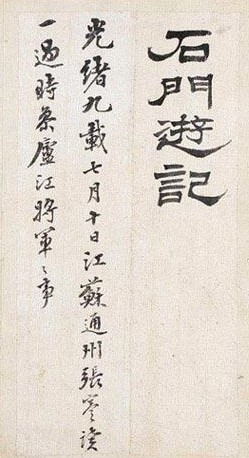 石門遊記
光緒九載七月十日江蘇通州張謇讀
一過時參廬江將軍〻事